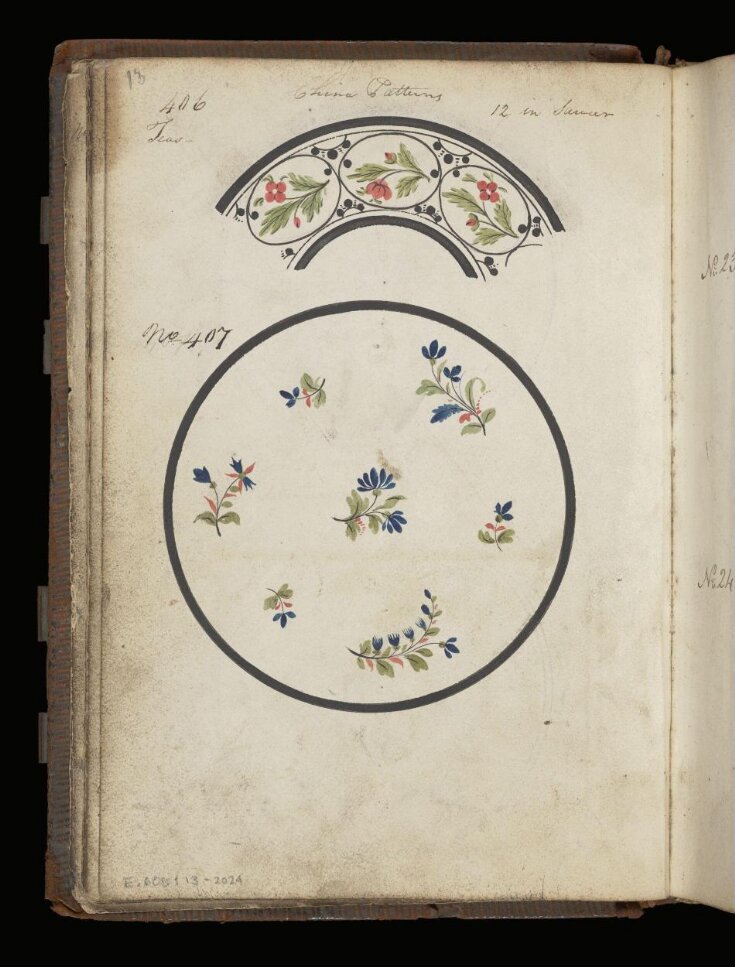 13
China Patterns
406
12 in Saucer
Teas
No 407
No. 23
No. 24
- 2024